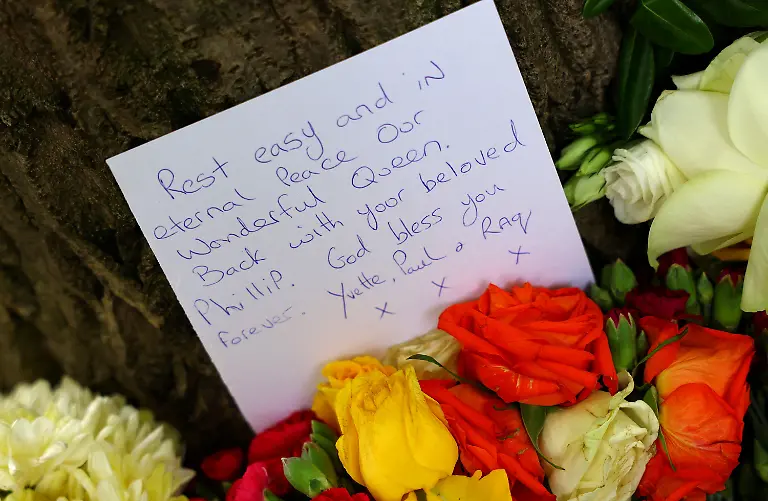 Rest easy and in
eternal Peace Our
Wonderful Queen.
Back with your beloved
Phillip. God bless you
forever. Yvette, Paul & RAq
x x x